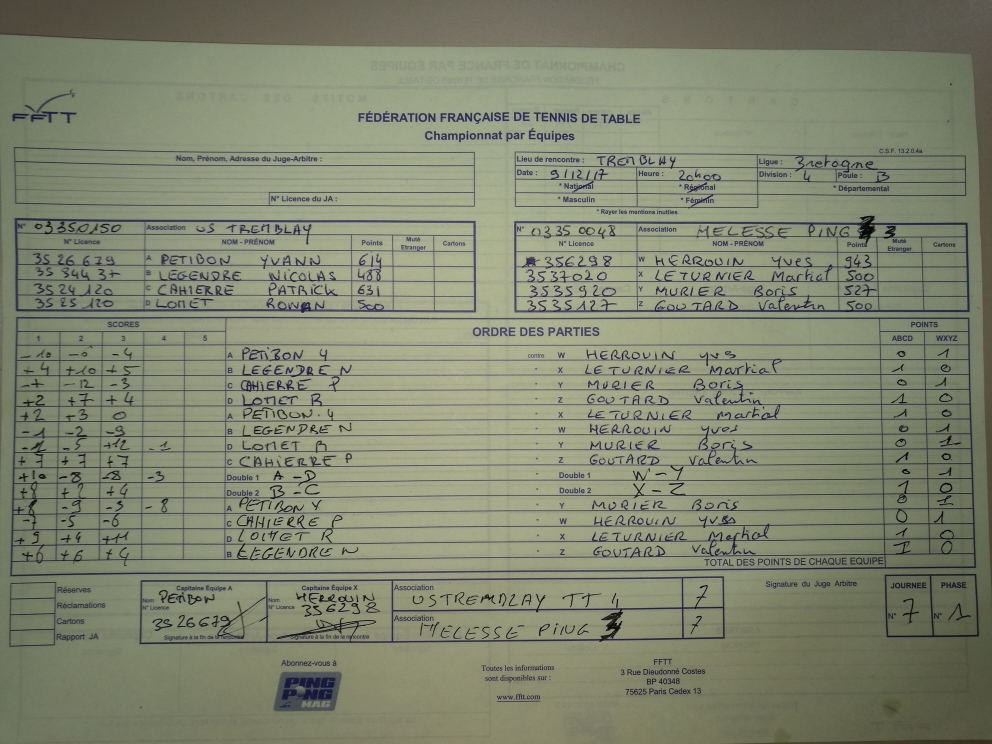 FFTT
FÉDÉRATION FRANÇAISE DE TENNIS DE TABLE
Championnat par Équipes
C.S.F. 13.2.0.4a
Nom, Prénom, Adresse du Juge-Arbitre :
N° Licence du JA :
Lieu de rencontre : TREMBLAY Ligue : Bretogne
Date : 9/12/17 Heure : 20h00 Division : 4 Poule : B
* National * Régional * Départemental
* Masculin * Féminin
* Rayer les mentions inutiles
N° 03350150 Association US TREMBLAY
N° Licence NOM - PRÉNOM Points Muté Etranger Cartons
35 26 679 A PETIBON YVANN 614
35 844 37 B LEGENDRE NICOLAS 488
35 24 120 C CAHIERRE PATRICK 631
35 25 120 D LOMET RONAN 500
N° 0335 0048 Association MELESSE PING 3
N° Licence NOM - PRÉNOM Points Muté Etranger Cartons
356298 W HERROUIN Yves 943
3537020 X LETURNIER Martial 500
3535920 Y MURIER Boris 527
3535127 Z GOUTARD Valentin 500
SCORES ORDRE DES PARTIES POINTS
1 2 3 4 5 ABCD WXYZ
-10 -0 -4 A PETIBON Y contre W HERROUIN yves 0 1
+4 +10 +5 B LEGENDRE N " X LETURNIER Martial 1 0
-12 -3 C CAHIERRE P " Y MURIER Boris 0 1
+2 +7 +4 D LOMET R " Z GOUTARD Valentin 1 0
+2 +3 0 A PETIBON.Y " X LETURNIER Martial 1 0
-1 -2 -9 B LEGENDRE N " W HERROUIN yves 0 1
-5 +12 -1 D LOMET R " Y MURIER Boris 0 1
+7 +7 +7 C CAHIERRE P " Z GOUTARD Valentin 1 0
+10 -8 -8 -3 Double 1 A - D " Double 1 W - Y 0 1
+8 +2 +4 Double 2 B - C " Double 2 X - Z 1 0
+8 -9 -3 -8 A PETIBON Y " Y MURIER Boris 0 1
-7 -5 -6 C CAHIERRE P " W HERROUIN yves 0 1
+9 +4 +11 D LOMET R " X LETURNIER Martial 1 0
+6 +6 +4 B LEGENDRE N " Z GOUTARD Valentin 1 0
TOTAL DES POINTS DE CHAQUE EQUIPE
Réserves
Réclamations
Cartons
Rapport JA
Capitaine Équipe A
Nom PETIBON
N° Licence
35 26679
Signature à la fin de la rencontre
Capitaine Équipe X
Nom HERROUIN
N° Licence 356298
Signature à la fin de la rencontre
Association
US TREMBLAY TT 4 7
Association
MELESSE PING 3 7
Signature du Juge Arbitre
JOURNEE PHASE
N° 7 N° 1
Abonnez-vous à
PING PONG MAG
Toutes les informations
sont disponibles sur :
www.fftt.com
FFTT
3 Rue Dieudonné Costes
BP 40348
75625 Paris Cedex 13